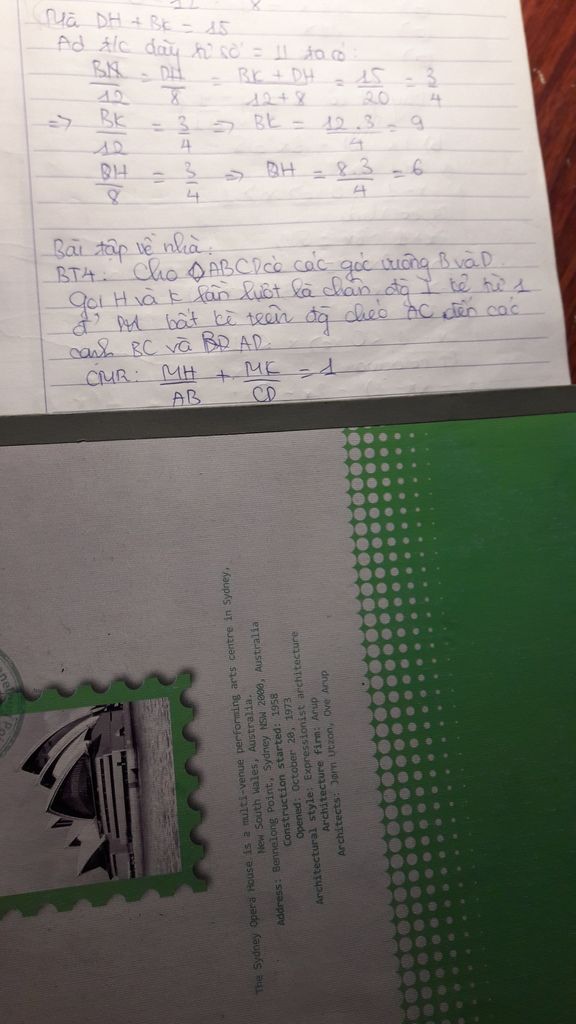 Mà DH + BK = 15
Ad t/c dãy tỉ số = 11 ta có:
BK/12 = DH/8 = BK + DH/12+8 = 15/20 = 3/4
=> BK/12 = 3/4 => BK = 12.3/4 = 9
DH/8 = 3/4 => DH = 8.3/4 = 6
Bài tập về nhà:
BT4: Cho ◊ABCD có các góc vuông B và D.
gọi H và K lần lượt là chân đg ⊥ kẻ từ 1
đ' M bất kì trên đg chéo AC đến các
cạnh BC và AD.
CMR: MH/AB + MK/CD = 1
The Sydney Opera House is a multi-venue performing arts centre in Sydney,
New South Wales, Australia.
Address: Bennelong Point, Sydney NSW 2000, Australia
Construction started: 1958
Opened: October 20, 1973
Architectural style: Expressionist architecture
Architecture firm: Arup
Architects: Jørn Utzon, Ove Arup